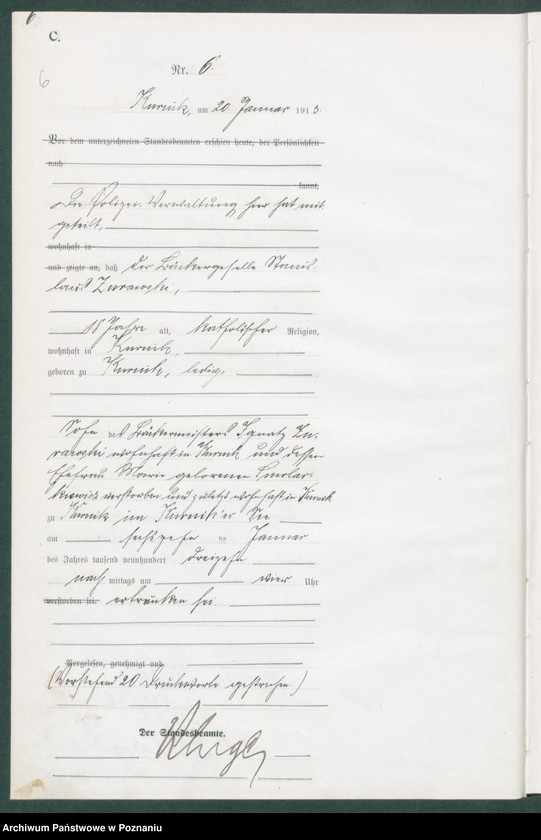 6
C.
6
Nr. 6.
Kurnik, am 20. Januar 1913.
Vor dem unterzeichneten Standesbeamten erschien heute, der Persönlichkeit
nach
kannt,
Die Polizei-Verwaltung hier hat mit
geteilt,
wohnhaft in
und zeigte an, daß der Bäckergeselle Stanis
laus Zurawski,
18 Jahre alt, katholischer Religion,
wohnhaft in Kurnik,
geboren zu Kurnik, ledig,
Sohn des Bäckermeisters Ignatz Zu
rawski wohnhaft in Kurnik und dessen
Ehefrau Marie geborenen Smolar
kiewicz verstorben und zuletzt wohnhaft in Kurnik
zu Kurnik im Kurniker See
am sechszehn Januar
des Jahres tausend neunhundert dreizehn
nach mittags um vier Uhr
verstorben sei. ertrunken sei.
Vorgelesen, genehmigt und
(Vorstehend 20 Druckworte gestrichen.)
Der Standesbeamte.
Archiwum Państwowe w Poznaniu